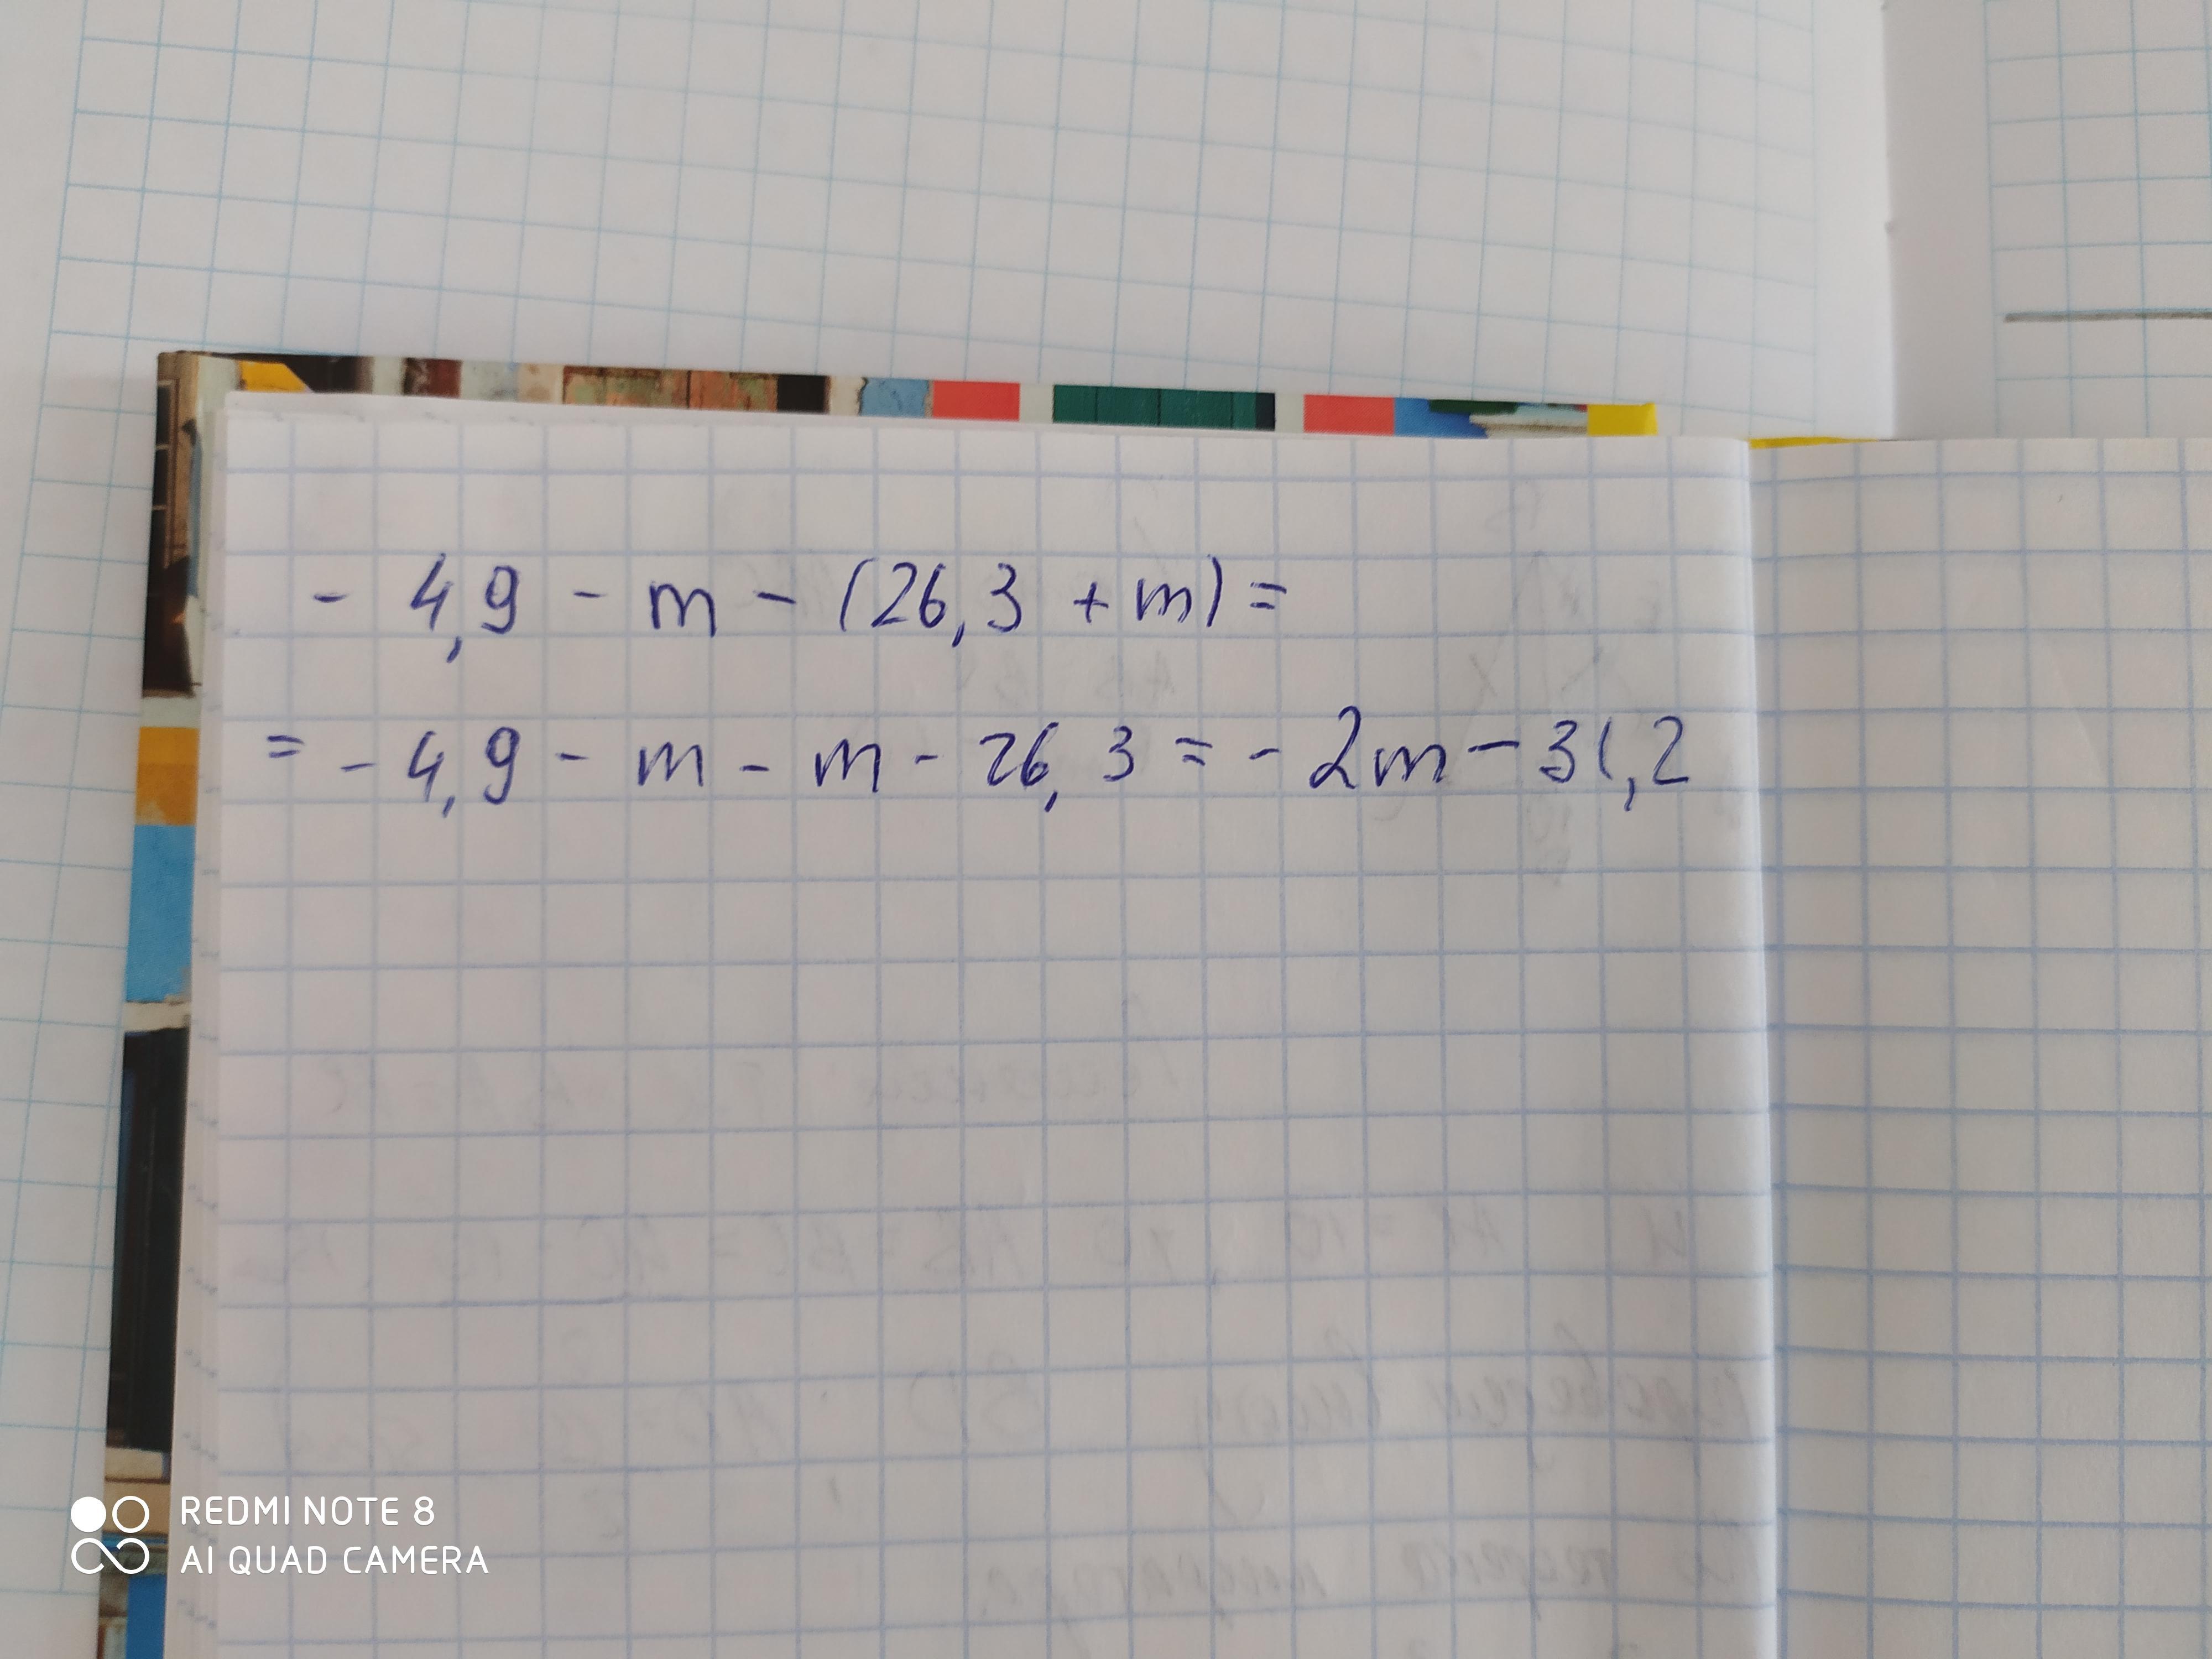 - 4,9 - m - (26,3 + m) =
= - 4,9 - m - m - 26,3 = - 2m - 31,2
REDMI NOTE 8
AI QUAD CAMERA